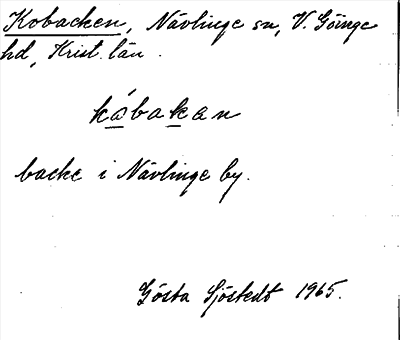 Kobacken, Nävlinge sn, V. Göinge
hd, Krist. län.
kóbakan
backe i Nävlinge by.
Gösta Sjöstedt 1965.